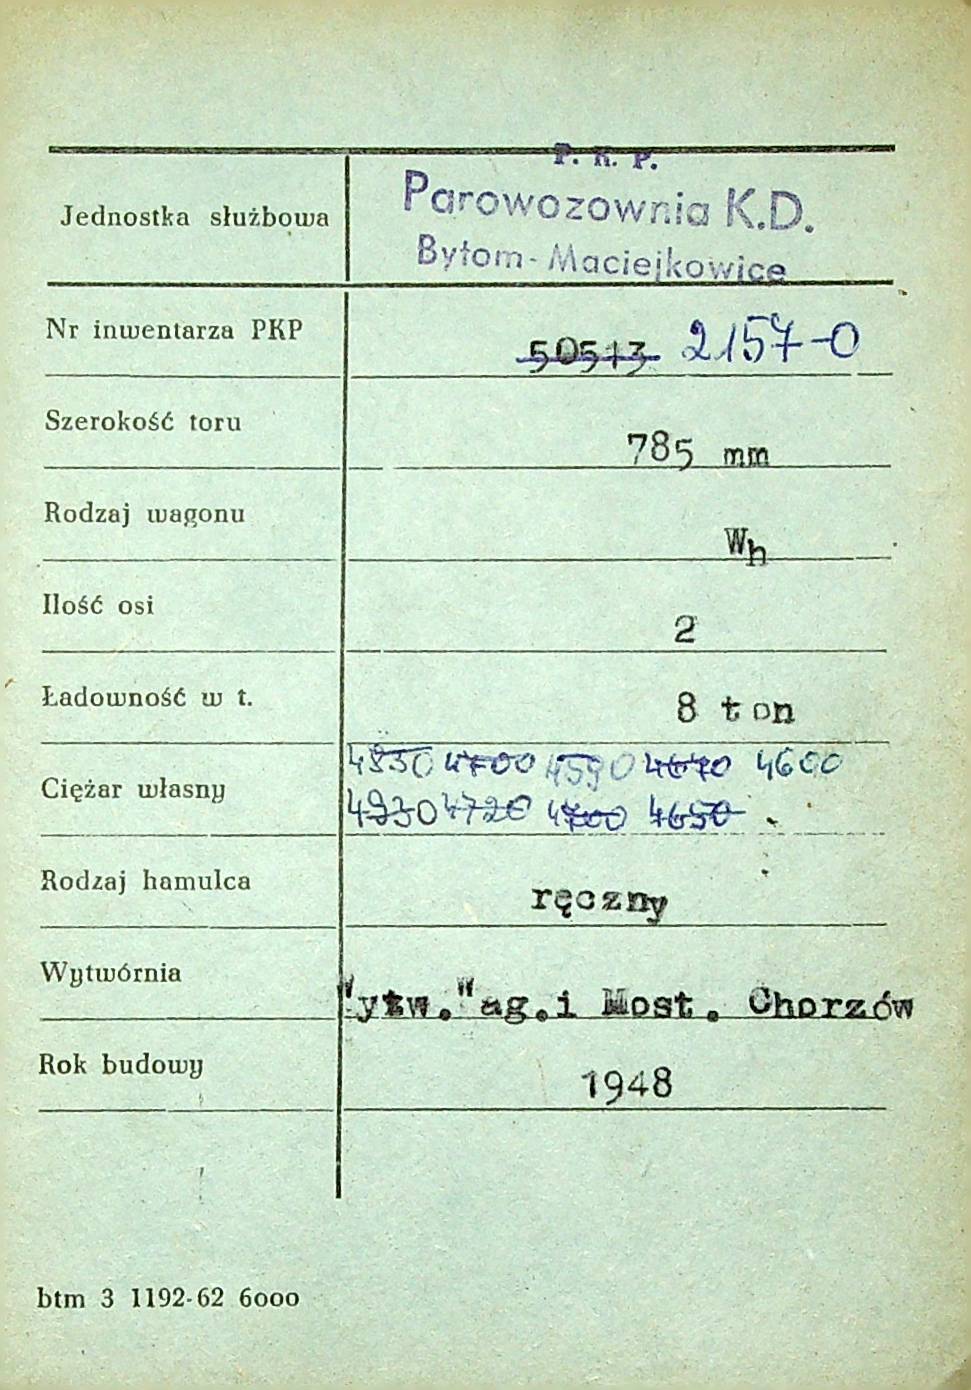 P. K. P.
Jednostka służbowa Parowozownia K.D.
Bytom-Maciejkowice
Nr inwentarza PKP 50513 2157-0
Szerokość toru 785 mm
Rodzaj wagonu Wh
Ilość osi 2
Ładowność w t. 8 ton
4830 4700 4590 4670 4600
Ciężar własny 4930 4720 4700 4650
Rodzaj hamulca ręczny
Wytwórnia Wytw.Wag.i Most. Chorzów
Rok budowy 1948
btm 3 1192-62 6000